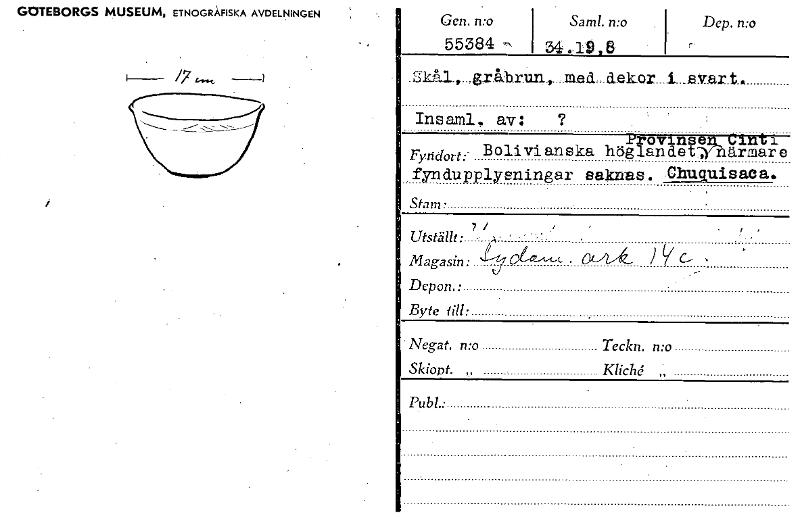 GÖTEBORGS MUSEUM, ETNOGRÅFISKA AVDELNINGEN
17 cm
Gen. n:o Saml. n:o Dep. n:o
55384 34.19.8
Skål, gråbrun, med dekor i svart.
Insaml. av: ?
Provinsen Cinti
Fyndort: Bolivianska höglandet, närmare
fyndupplysningar saknas. Chuquisaca.
Stam:
Utställt:
Magasin: Sydam. ark 14 c.
Depon.:
Byte till:
Negat. n:o Teckn. n:o
Skiopt. „ Kliché „
Publ.: